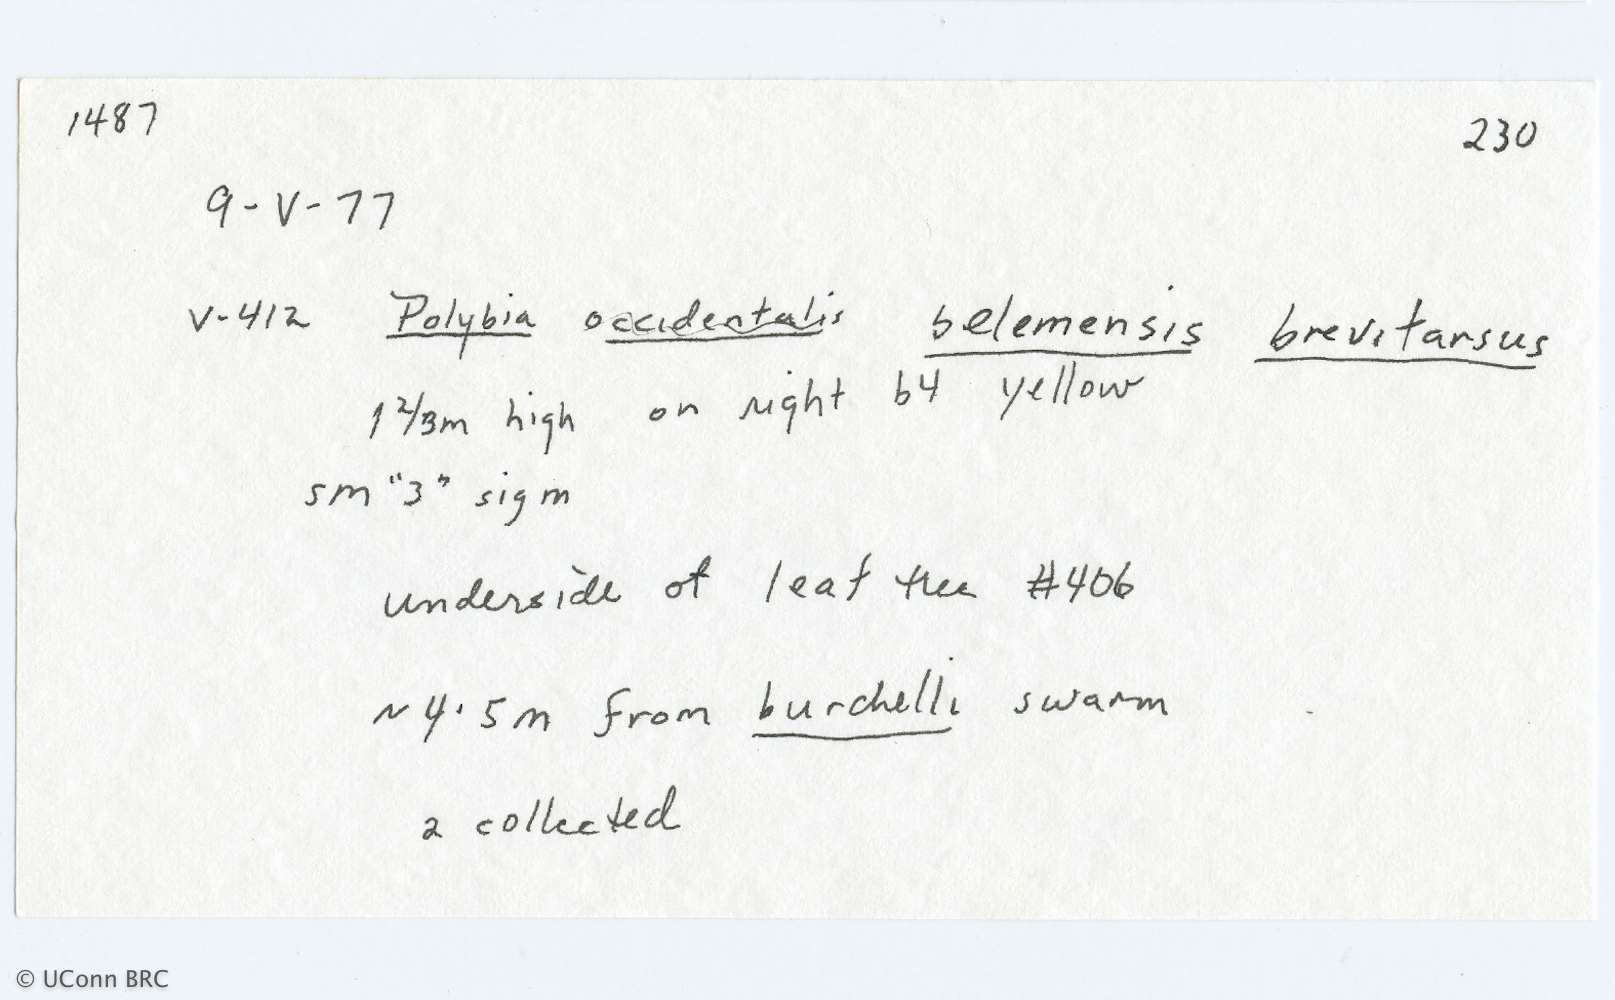 1487
230
9-V-77
V-412 Polybia occidentalis belemensis brevitarsus
1 2/3m high on right b4 yellow
sm "3" sigm
underside of leaf tree #406
~4.5m from burchelli swarm
2 collected
© UConn BRC